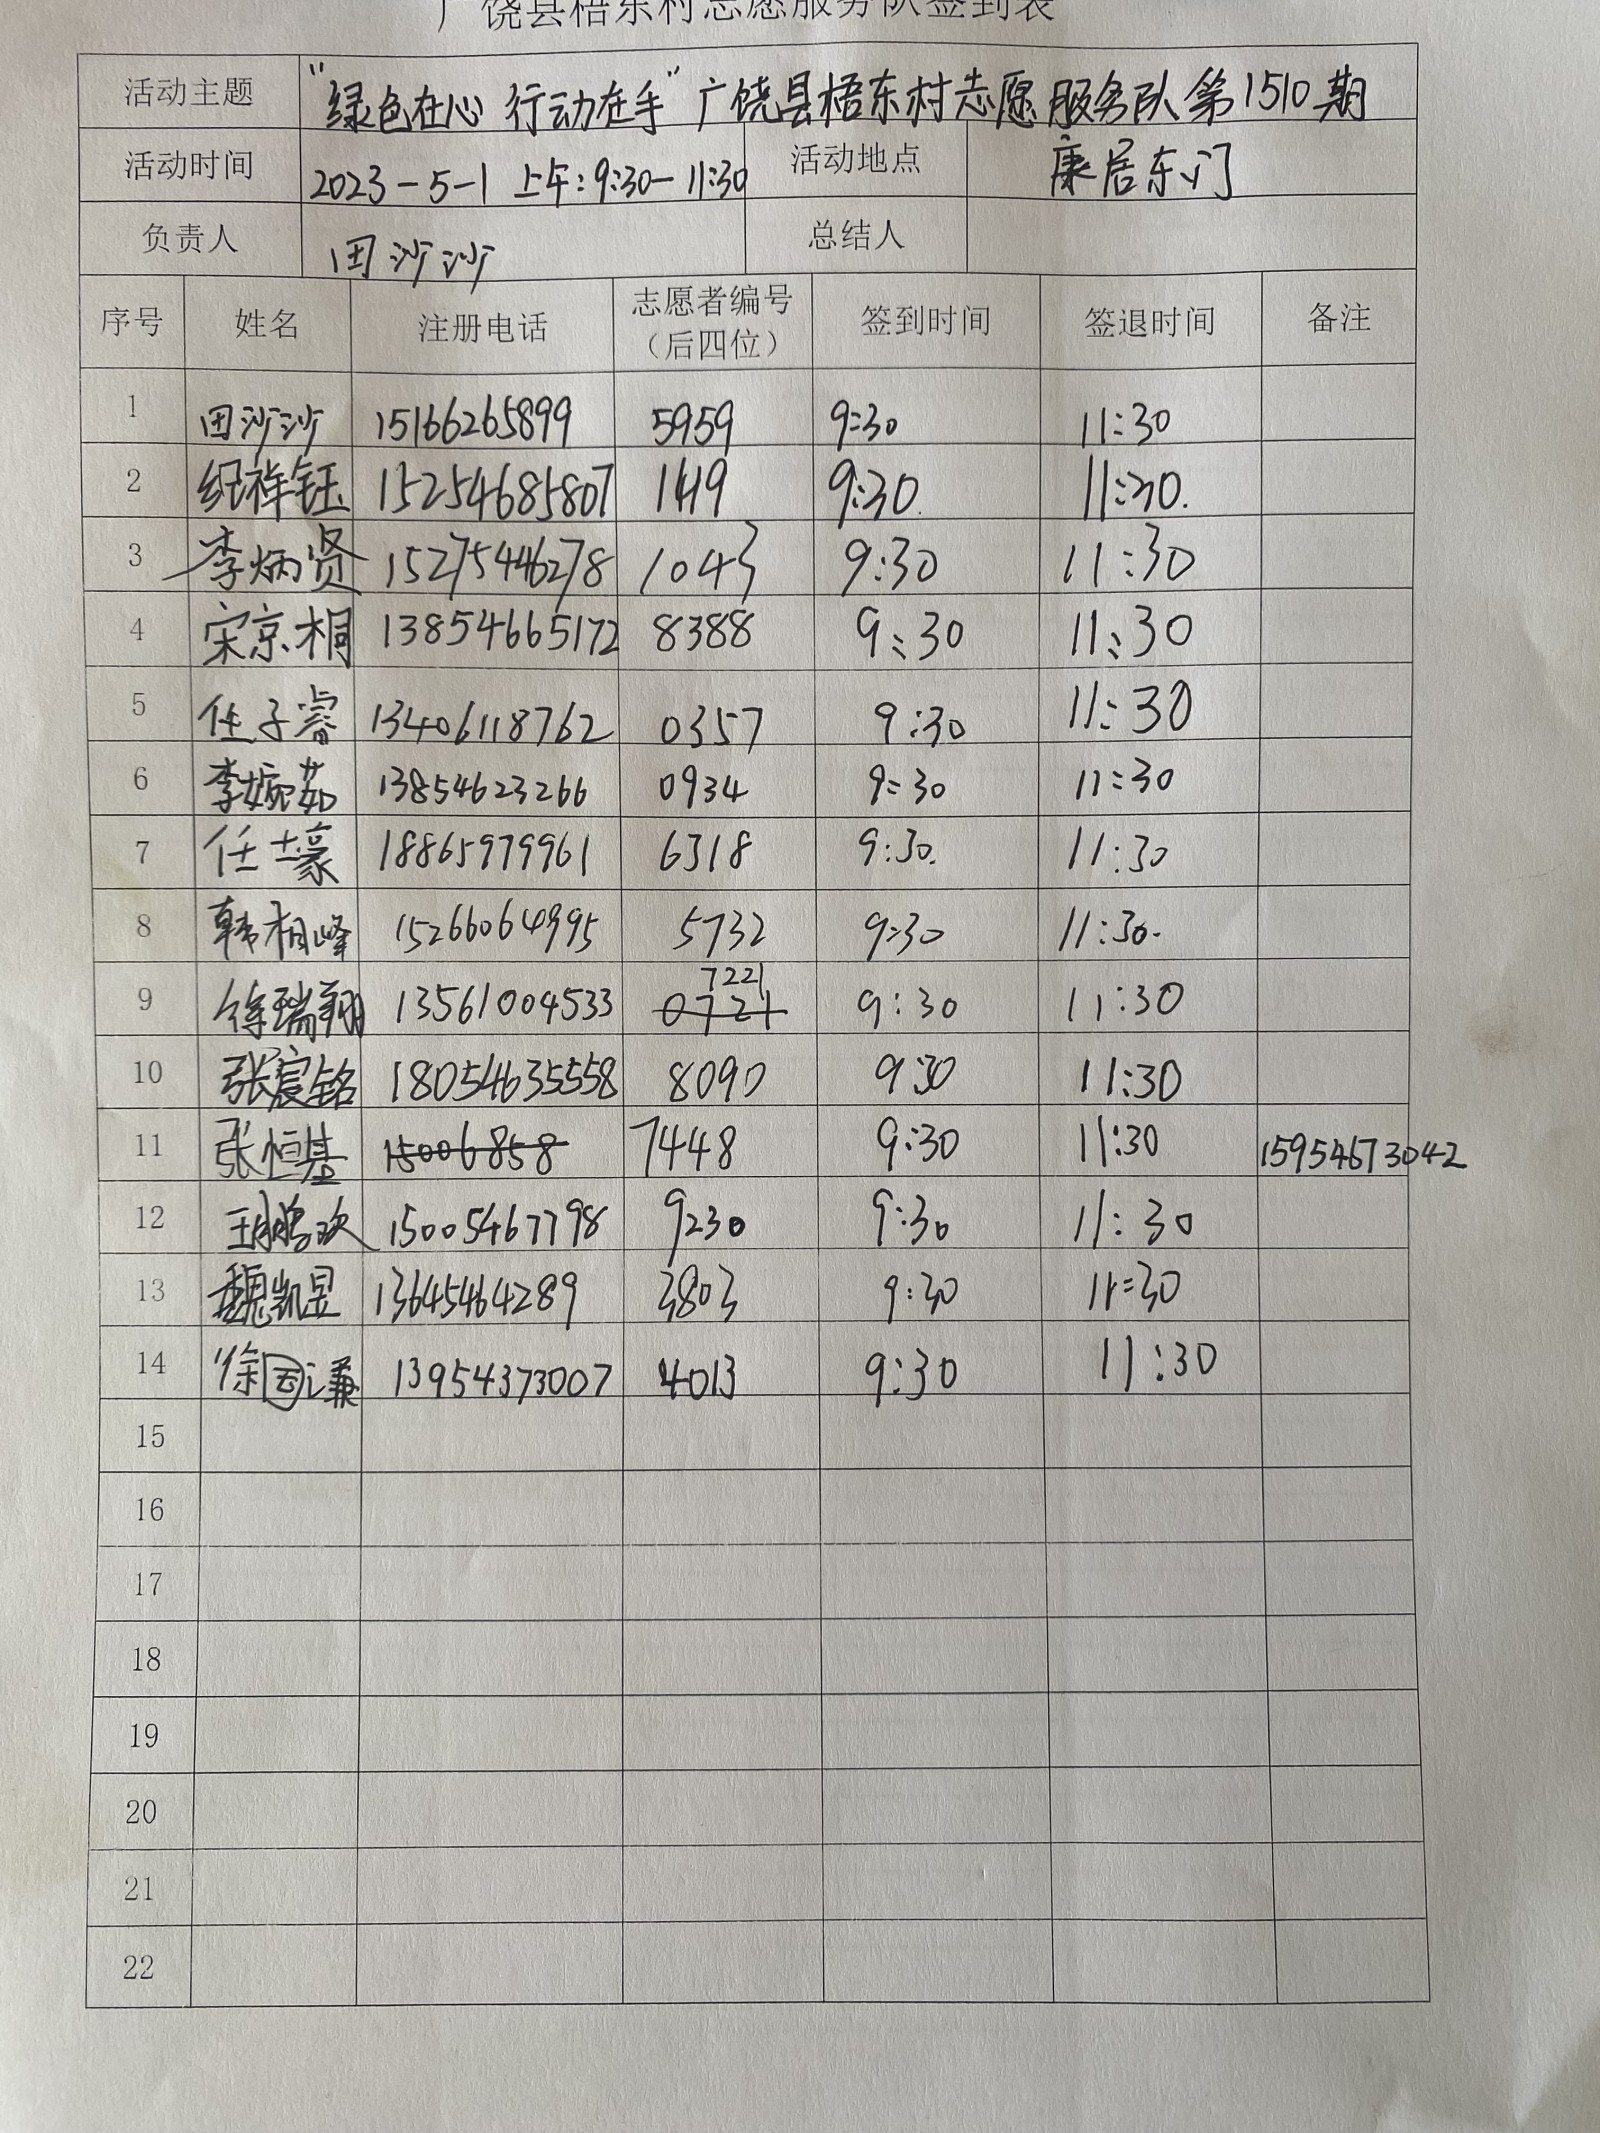 广饶县梧东村志愿服务队签到表
活动主题 "绿色在心 行动在手"广饶县梧东村志愿服务队第1510期
活动时间 2023-5-1 上午:9:30-11:30 活动地点 康居东门
负责人 田沙沙 总结人
序号 姓名 注册电话 志愿者编号（后四位） 签到时间 签退时间 备注
1 田沙沙 15166265899 5959 9:30 11:30
2 纪祥钰 15254685807 1419 9:30. 11:30.
3 李炳贤 15275446278 1043 9:30 11:30
4 宋京桐 13854665172 8388 9:30 11:30
5 任子睿 13406118762 0357 9:30 11:30
6 李婉茹 13854623266 0934 9:30 11:30
7 任士豪 18865979961 6318 9:30. 11:30
8 韩相峰 15266064995 5732 9:30 11:30.
9 徐瑞翔 13561004533 7221 0721 9:30 11:30
10 张宸铭 18054635558 8090 9:30 11:30
11 张恒基 15006858 7448 9:30 11:30 15954673042
12 王鹏欢 15005467798 9230 9:30 11:30
13 魏凯昱 13645464289 3803 9:30 11:30
14 徐国谦 13954373007 4013 9:30 11:30
15
16
17
18
19
20
21
22